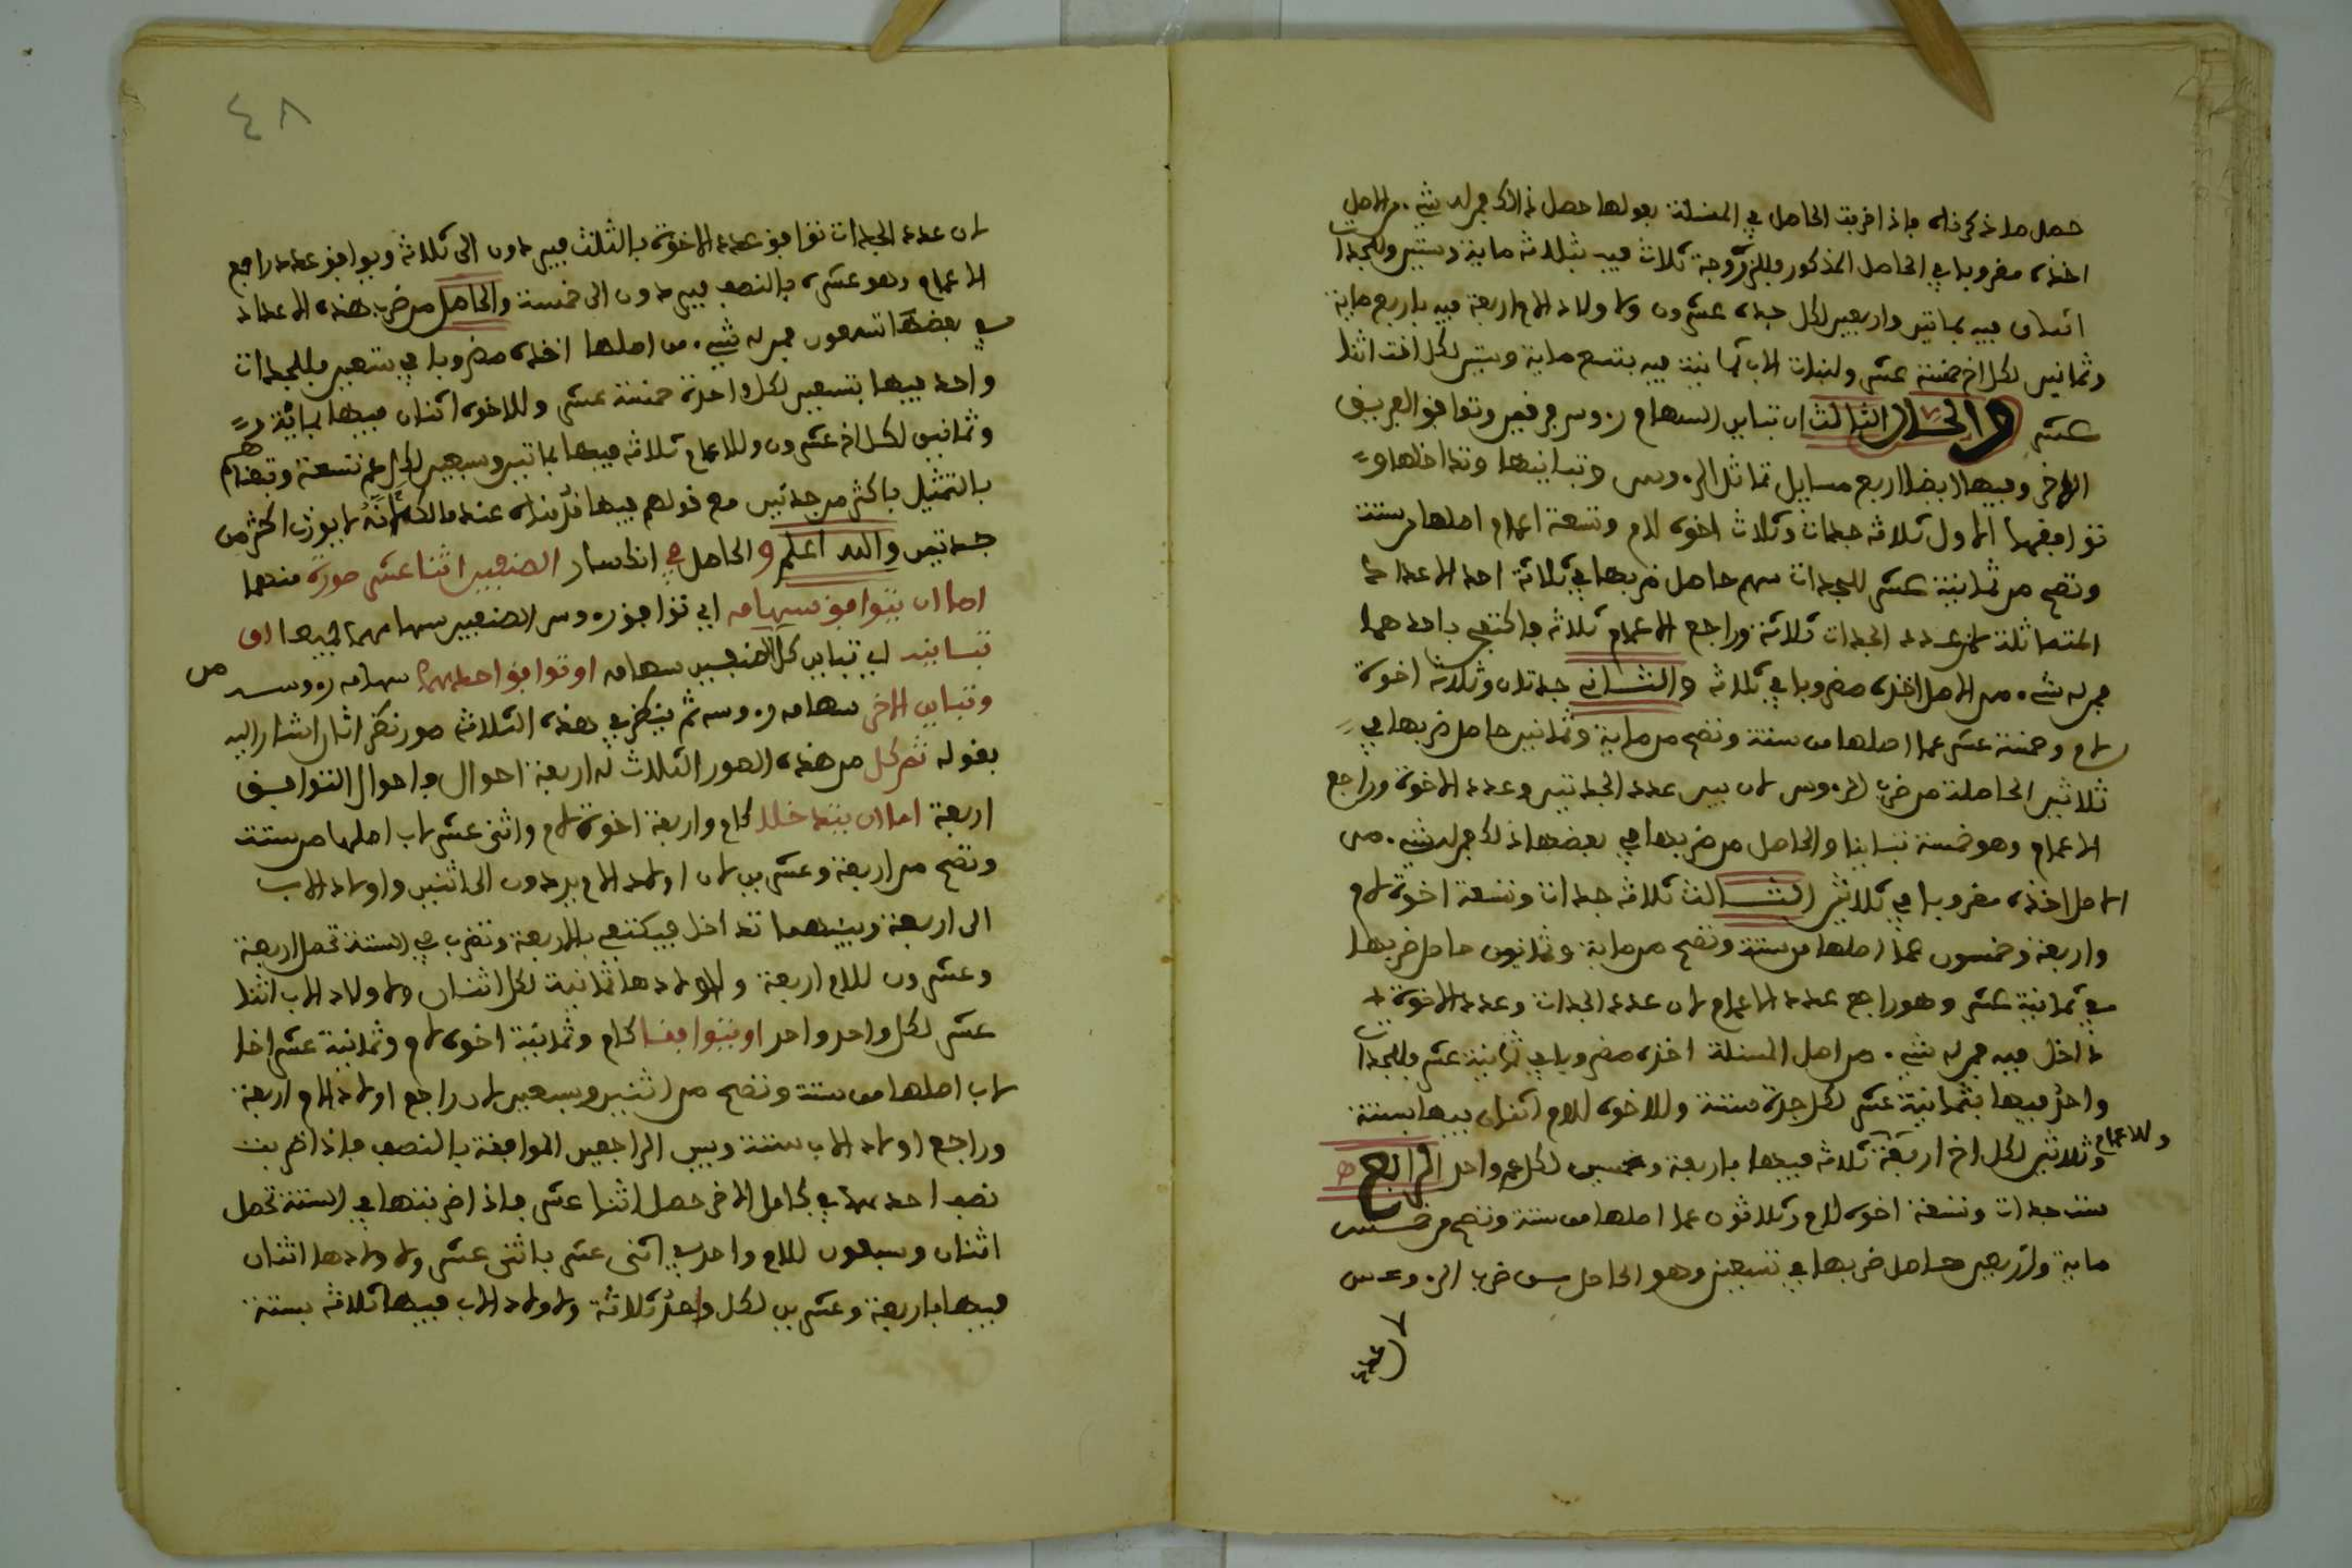 حصل ما ذكرناه فإذا ضربت الحاصل في المسئلة بعولها حصل ذالك فمن له شيء من الاصل
اخذه مضروبا في الحاصل المذكور فللزوجة ثلاث فيه بثلاثة ماية وستين وللجدات
اثنان فيه بماتين واربعين لكل جدة عشرون ولاولاد الام اربعة فيه باربع ماية
وثمانين لكل اخ خمسة عشر ولبنات الاب ثمانية فيه بتسع ماية وستين لكل اخت اثنا
عشر والحال الثالث ان تباين السهام روس فريقين وتوافق الفريق
الاخر وفيها ايضا اربع مسايل تماثل الروس وتباينها وتداخلها و
توافقها الاول ثلاثة جدات وثلاث اخوة لام وتسعة اعمام اصلها من ستة
وتصح من ثمانية عشر للجدات سهم حاصل ضربها في ثلاثة احد الاعداد
المتماثلة لان عدد الجدات ثلاثة وراجع الاعمام ثلاثة فاكتفي باحدهما
فمن له شيء من الاصل اخذه مضروبا في ثلاثة والثاني جدتان وثلاثة اخوة
لام وخمسة عشر عما اصلها من ستة وتصح من ماية وثمانين حاصل ضربها في
ثلاثين الحاصلة من ضرب الروس لان بين عدد الجدتين وعدد الاخوة وراجع
الاعمام وهو خمسة تباينا والحاصل من ضربها في بعضها ذلك فمن له شيء من
الاصل اخذه مضروبا في ثلاثين الثالث ثلاثة جدات وتسعة اخوة لام
واربعة وخمسون عما اصلها من ستة وتصح من ماية وثمانيون حاصل ضربها
في ثمانية عشر وهو راجع عدد الاعمام لان عدد الجدات وعدد الاخوة
داخل فيه فمن له شيء من اصل المسئلة اخذه مضروبا في ثمانية عشر فللجدات
واحد فيها بثمانية عشر لكل جدة ستة وللاخوة للام اثنان فيها بستة
وثلاثين لكل اخ اربعة وللاعمام ثلاثة فيها باربعة وخمسين لكل عم واحد الرابع
ست جدات وتسعة اخوة لام وثلاثون عما اصلها من ستة وتصح من خمس
ماية واربعين حاصل ضربها في تسعين وهو الحاصل من ضرب الروس
لان عدد
٤٨
لان عدد الجدات توافق عدد الاخوة بالثلث فيردون الى ثلاثة ويوافق عدد راجع
الاعمام وهو عشرة بالنصف فيردون الى خمسة والحاصل من ضرب هذه الاعداد
في بعضها تسعون فمن له شيء من اصلها اخذه مضروبا في تسعين فللجدات
واحد فيها بتسعين لكل واحدة خمسة عشر وللاخوة اثنان فيها بمائة
وثمانين لكل اخ عشرون وللاعمام ثلاثة فيها بماتين وسبعين لكل عم تسعة وتقدم
بالتمثيل باكثر من جدتين مع قولهم فيها انه عند مالك لانه لا يورث اكثر من
جدتين والله اعلم والحاصل في انكسار الصنفين اثنا عشر صورة منهما
اما ان يتوافق سهامه اي توافق روس الصنفين سهامهما جميعا او
تباينه اي تباين كل الصنفين سهامه او توافق احدهما سهامه روسه
وتباين الاخر سهامه روسه ثم ينظر في هذه الثلاثة صور نظر اثار اشار اليه
بقوله ثم كل من هذه الصور الثلاث له اربعة احوال فاحوال التوافق
اربعة اما ان يتداخلا كام واربعة اخوة لام واثني عشر لاب اصلها من ستة
وتصح من اربعة وعشرين لان اولاد الام يردون الى اثنين واولاد الاب
الى اربعة وبينهما تداخل فيكتفي بالاربعة وتضرب في الستة تحصل اربعة
وعشرون للام اربعة ولاولادها ثمانية لكل اثنان ولاولاد الاب اثنا
عشر لكل واحد واحد او يتوافقا كام وثمانية اخوة لام وثمانية عشر اخا
لاب اصلها من ستة وتصح من اثنين وسبعين لان راجع اولاد الام اربعة
وراجع اولاد الاب ستة وبين الراجعين الموافقة بالنصف فإذا ضربت
نصف احدهما في كامل الاخر حصل اثنا عشر فاذا ضربتها في الستة تحصل
اثنان وسبعون للام واحد في اثنى عشر باثنى عشر ولاولادها اثنان
فيها باربعة وعشرين لكل واحد ثلاثة ولاولاد الاب فيها ثلاثة بستة